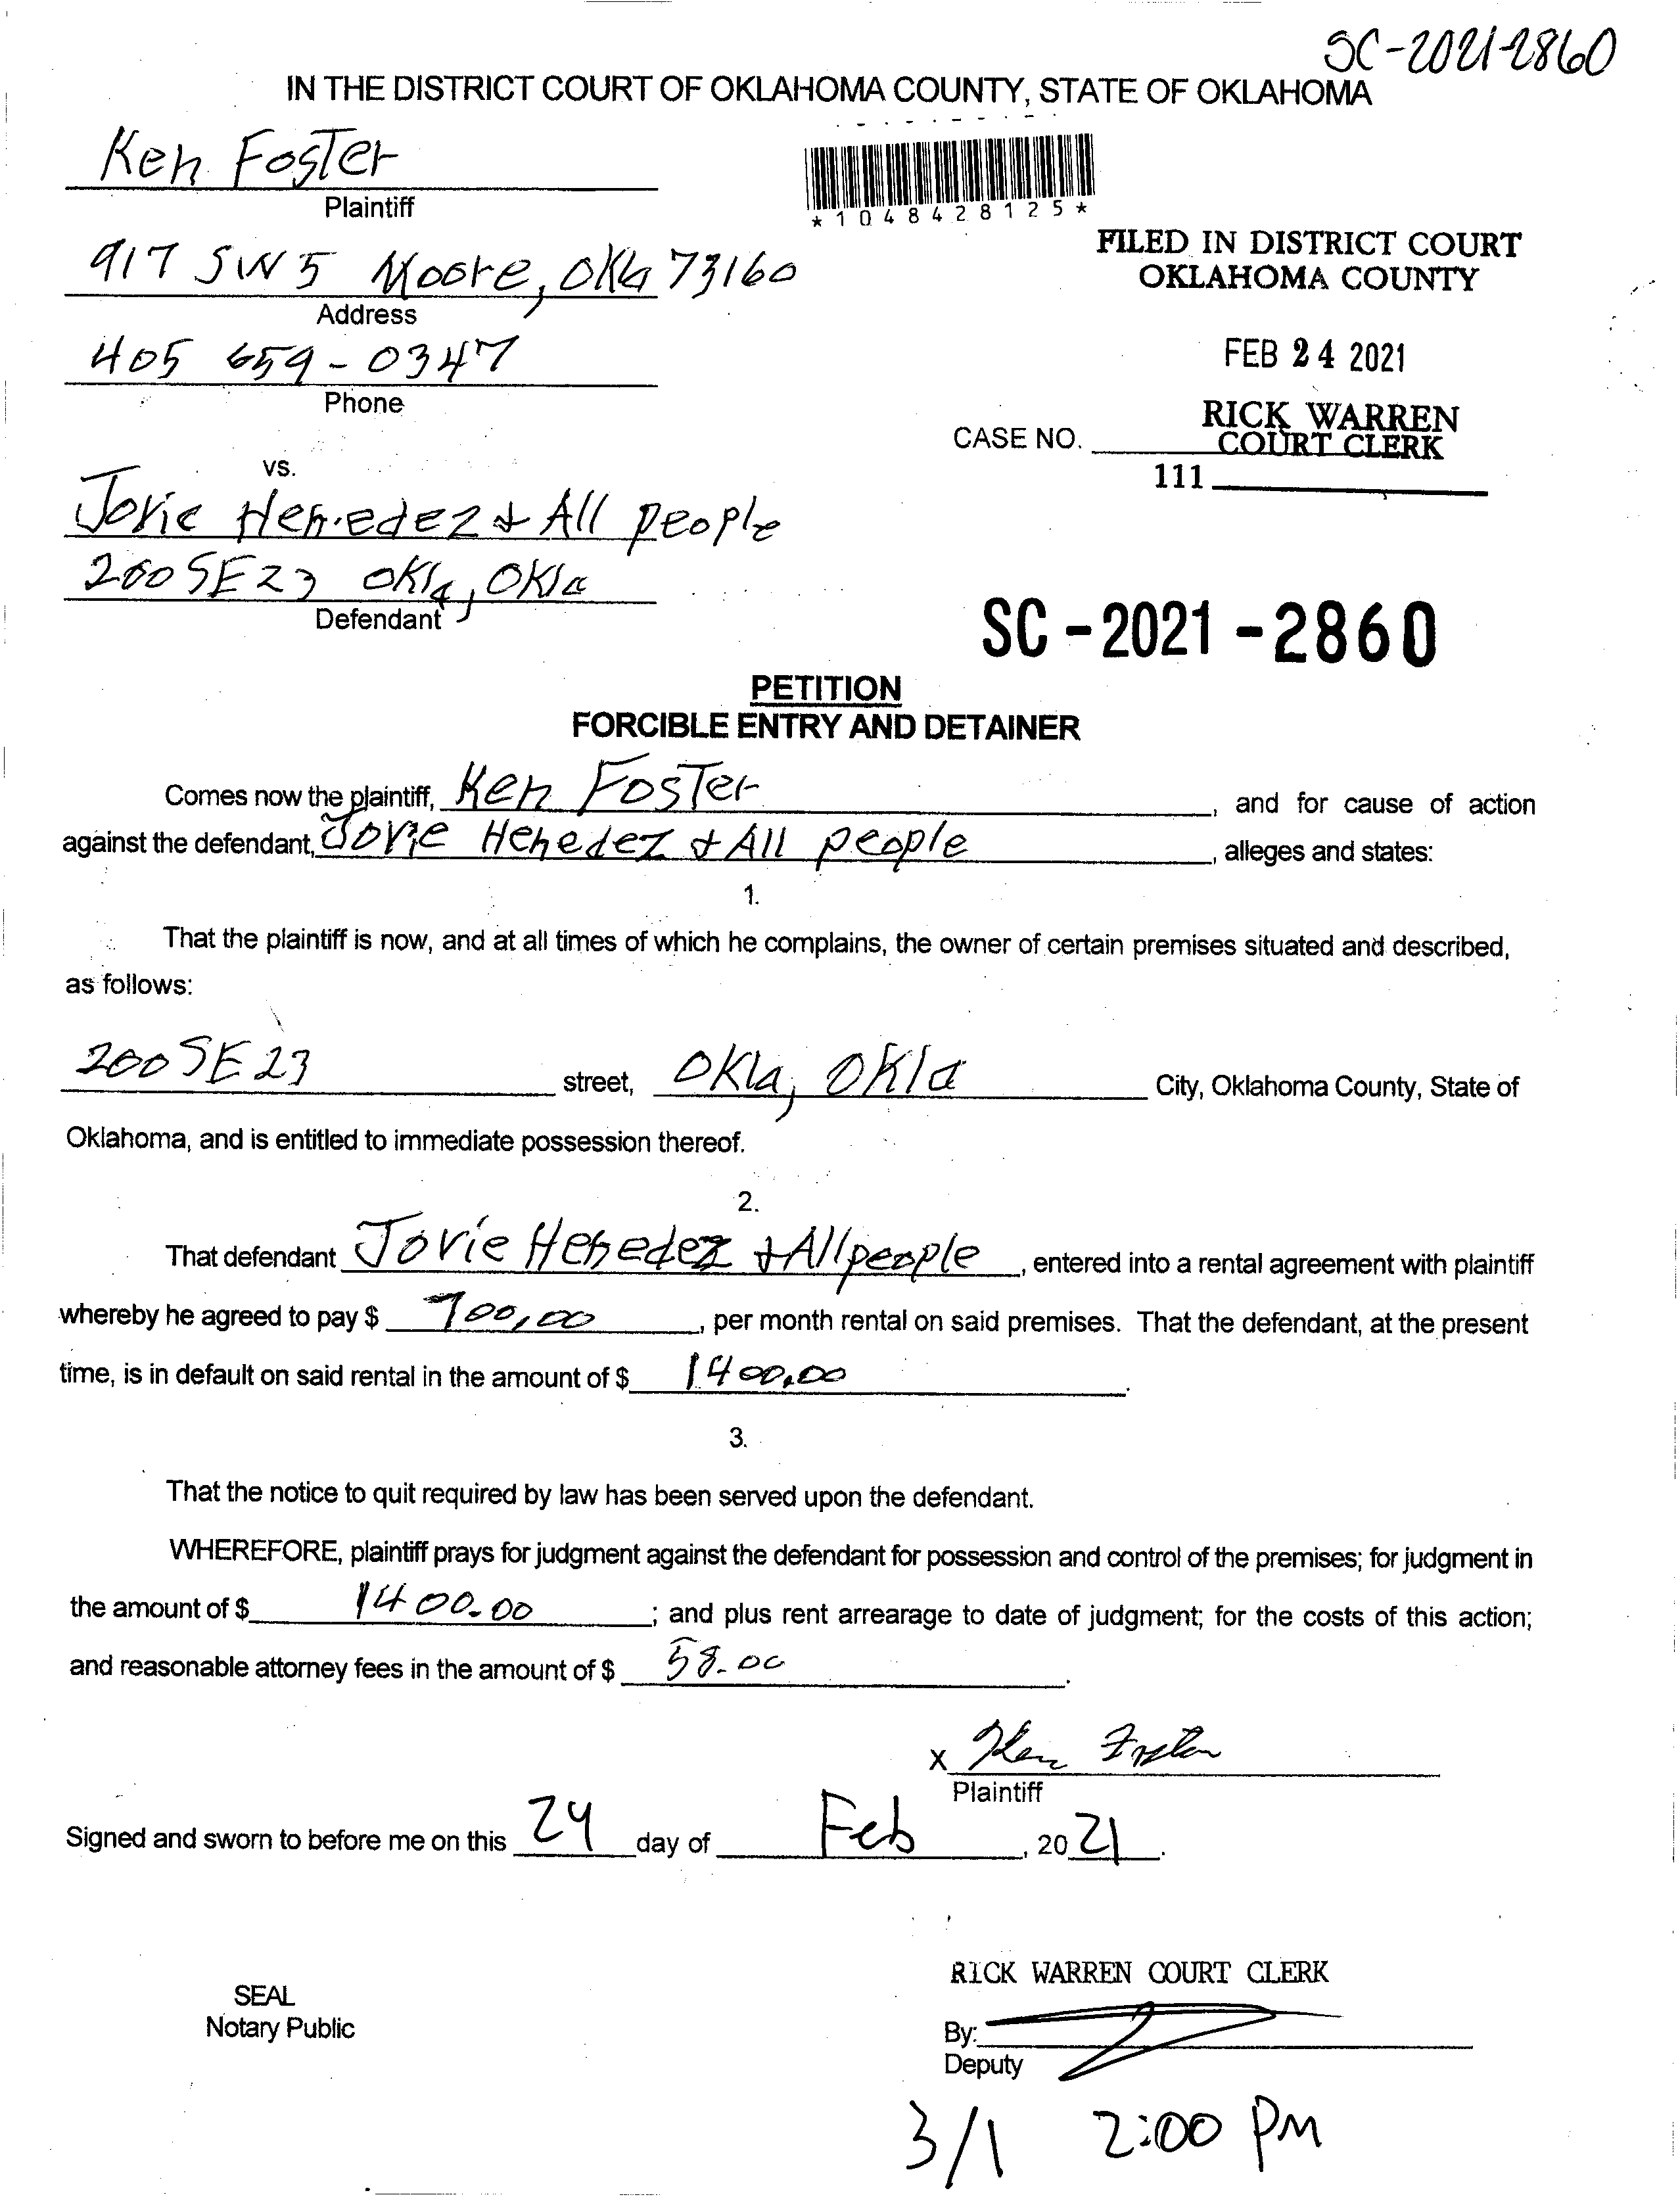 SC-2021-2860
IN THE DISTRICT COURT OF OKLAHOMA COUNTY, STATE OF OKLAHOMA
Ken Foster
Plaintiff
*1048428125*
917 SW 5 Moore, Okla 73160
Address
FILED IN DISTRICT COURT
OKLAHOMA COUNTY
405 659-0347
Phone
FEB 24 2021
RICK WARREN
COURT CLERK
CASE NO.
111
vs.
Jovie Henedez & All people
200 SE 23 Okla, Okla
Defendant
SC-2021-2860
PETITION
FORCIBLE ENTRY AND DETAINER
Comes now the plaintiff, Ken Foster, and for cause of action
against the defendant, Jovie Henedez & All people, alleges and states:
1.
That the plaintiff is now, and at all times of which he complains, the owner of certain premises situated and described,
as follows:
200 SE 23 street, Okla, Okla City, Oklahoma County, State of
Oklahoma, and is entitled to immediate possession thereof.
2.
That defendant Jovie Henedez & All people, entered into a rental agreement with plaintiff
whereby he agreed to pay $ 700.00, per month rental on said premises. That the defendant, at the present
time, is in default on said rental in the amount of $ 1400.00.
3.
That the notice to quit required by law has been served upon the defendant.
WHEREFORE, plaintiff prays for judgment against the defendant for possession and control of the premises; for judgment in
the amount of $ 1400.00; and plus rent arrearage to date of judgment; for the costs of this action;
and reasonable attorney fees in the amount of $ 58.00.
X Ken Foster
Plaintiff
Signed and sworn to before me on this 24 day of Feb, 2021.
RICK WARREN COURT CLERK
SEAL
Notary Public
By:
Deputy
3/1 2:00 PM